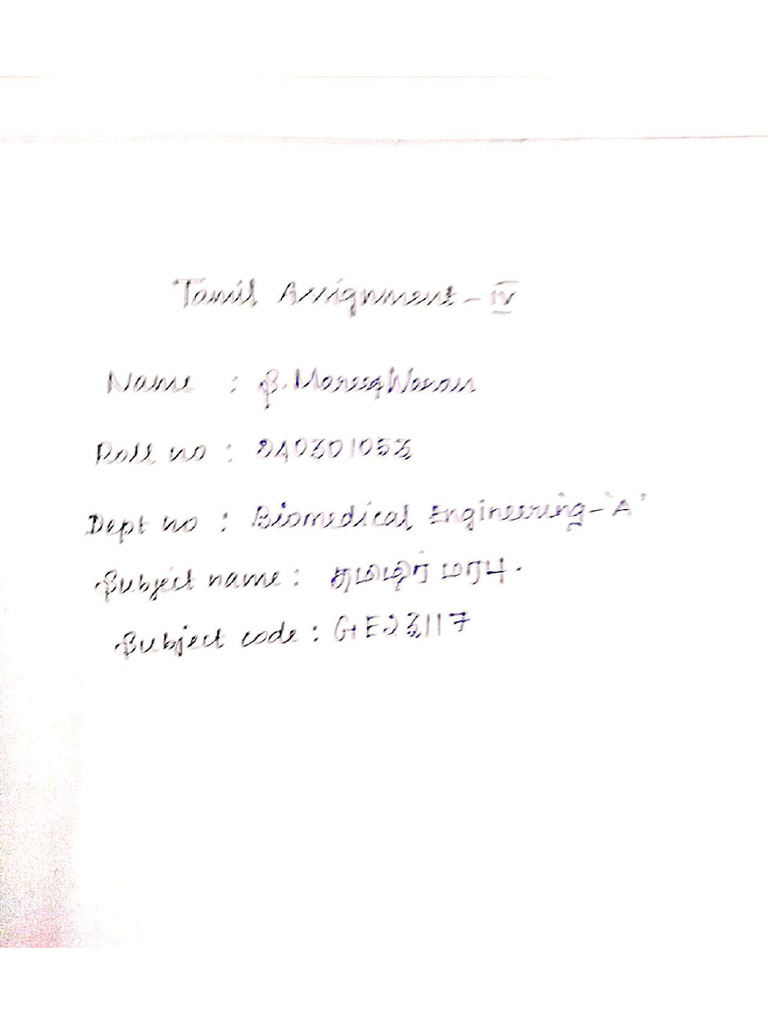 Tamil Assignment - IV
Name : S. Mareeshwaran
Roll no : 240301053
Dept no : Biomedical Engineering - "A"
Subject name : தமிழர் மரபு.
Subject code : GE23117